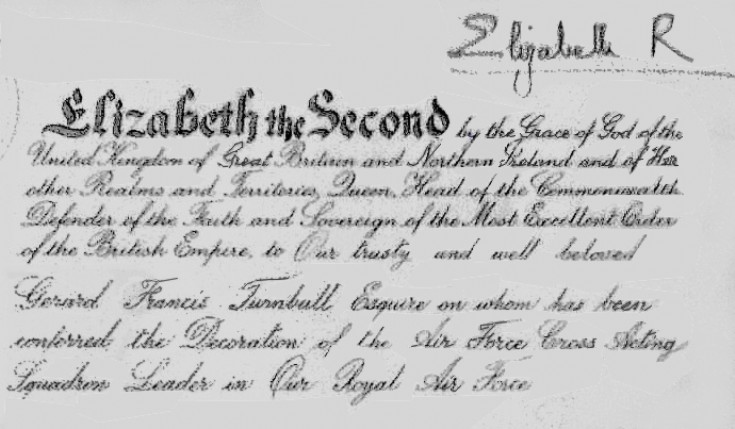 Elizabeth R
Elizabeth the Second by the Grace of God of the
United Kingdom of Great Britain and Northern Ireland and of Her
other Realms and Territories, Queen, Head of the Commonwealth
Defender of the Faith and Sovereign of the Most Excellent Order
of the British Empire, to Our trusty and well beloved
Gerard Francis Turnbull Esquire on whom has been
conferred the Decoration of the Air Force Cross Acting
Squadron Leader in Our Royal Air Force